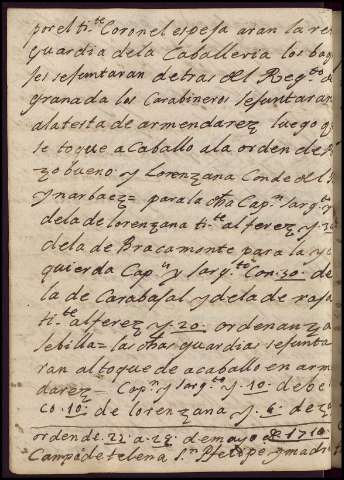 por el ti.te Coronel espesa aran la re
guardia dela Caballeria los bag
jes sejuntaran detras del Reg.to d
granada los Carabineros sejuntaran
alatesta de armendarez luego q
se toque acaballo ala orden de
zo bueno y Lorenzana Conde de
ynarbaez = para la dha Cap.n sarg.to y
dela de lorenzana ti.te alferez y 30
dela de Bracamonte para la yz
quierda Cap.n y sarg.to Con 30 de
la de Carabajal y dela de
ti.te alferez y 20 ordenanza
sebilla = las dhas guardias sejunta
ran altoque de acaballo en arm
darez = Cap.n y sarg.to y 10 de
co 10 de lorenzana y 6 de
orden de 22 a 28 de mayo de 1710
Campo de